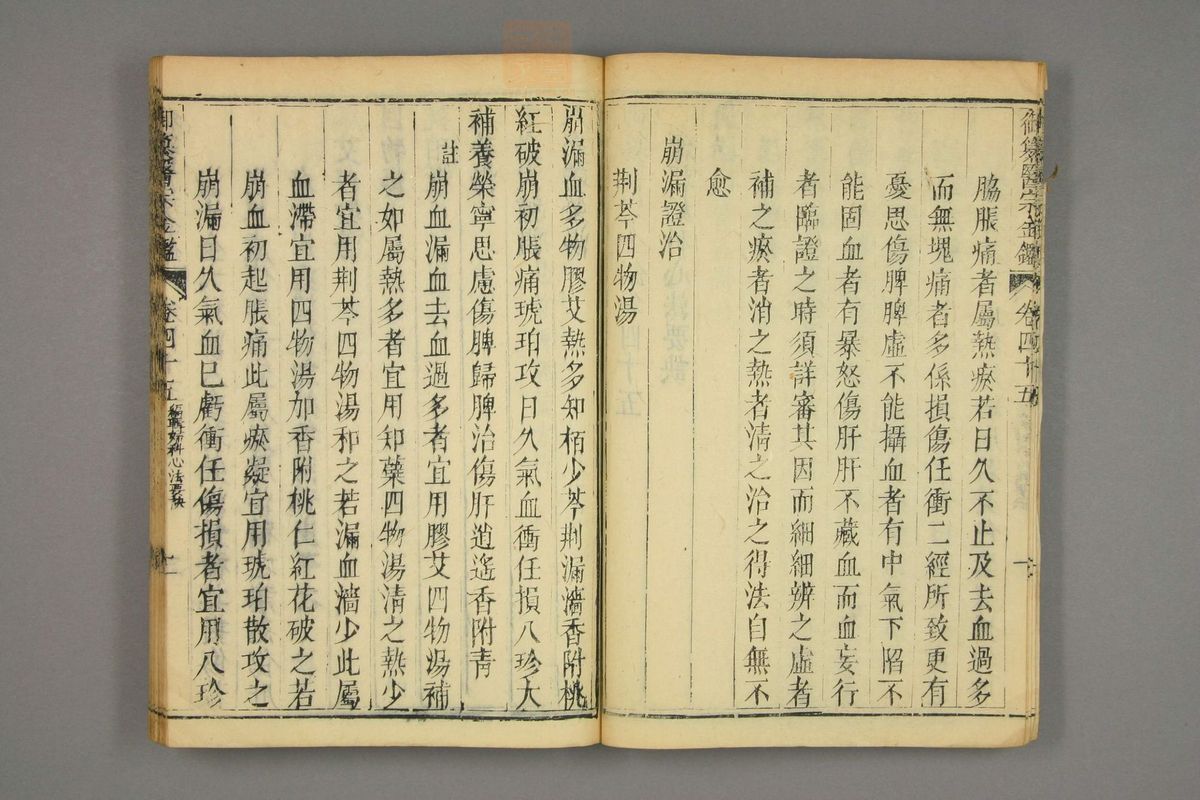 御纂醫宗金鑑 卷四十五 一
脇脹痛者屬熱瘀若日久不止及去血過多
而無塊痛者多係損傷任衝二經所致更有
憂思傷脾脾虛不能攝血者有中氣下陷不
能固血者有暴怒傷肝肝不藏血而血妄行
者臨證之時須詳審其因而細細辨之虛者
補之瘀者消之熱者清之治之得法自無不
愈
崩漏證治
荆芩四物湯
崩漏血多物膠艾熱多知栢少芩荆漏濇香附桃
紅破崩初脹痛琥珀攻日久氣血衝任損八珍大
補養榮寧思慮傷脾歸脾治傷肝逍遙香附青
註
崩血漏血去血過多者宜用膠艾四物湯補
之如屬熱多者宜用知蘗四物湯清之熱少
者宜用荆芩四物湯和之若漏血濇少此屬
血滯宜用四物湯加香附桃仁紅花破之若
崩血初起脹痛此屬瘀凝宜用琥珀散攻之
崩漏日久氣血已虧衝任傷損者宜用八珍
御纂醫宗金鑑 卷四十五 編輯婦科心法要訣